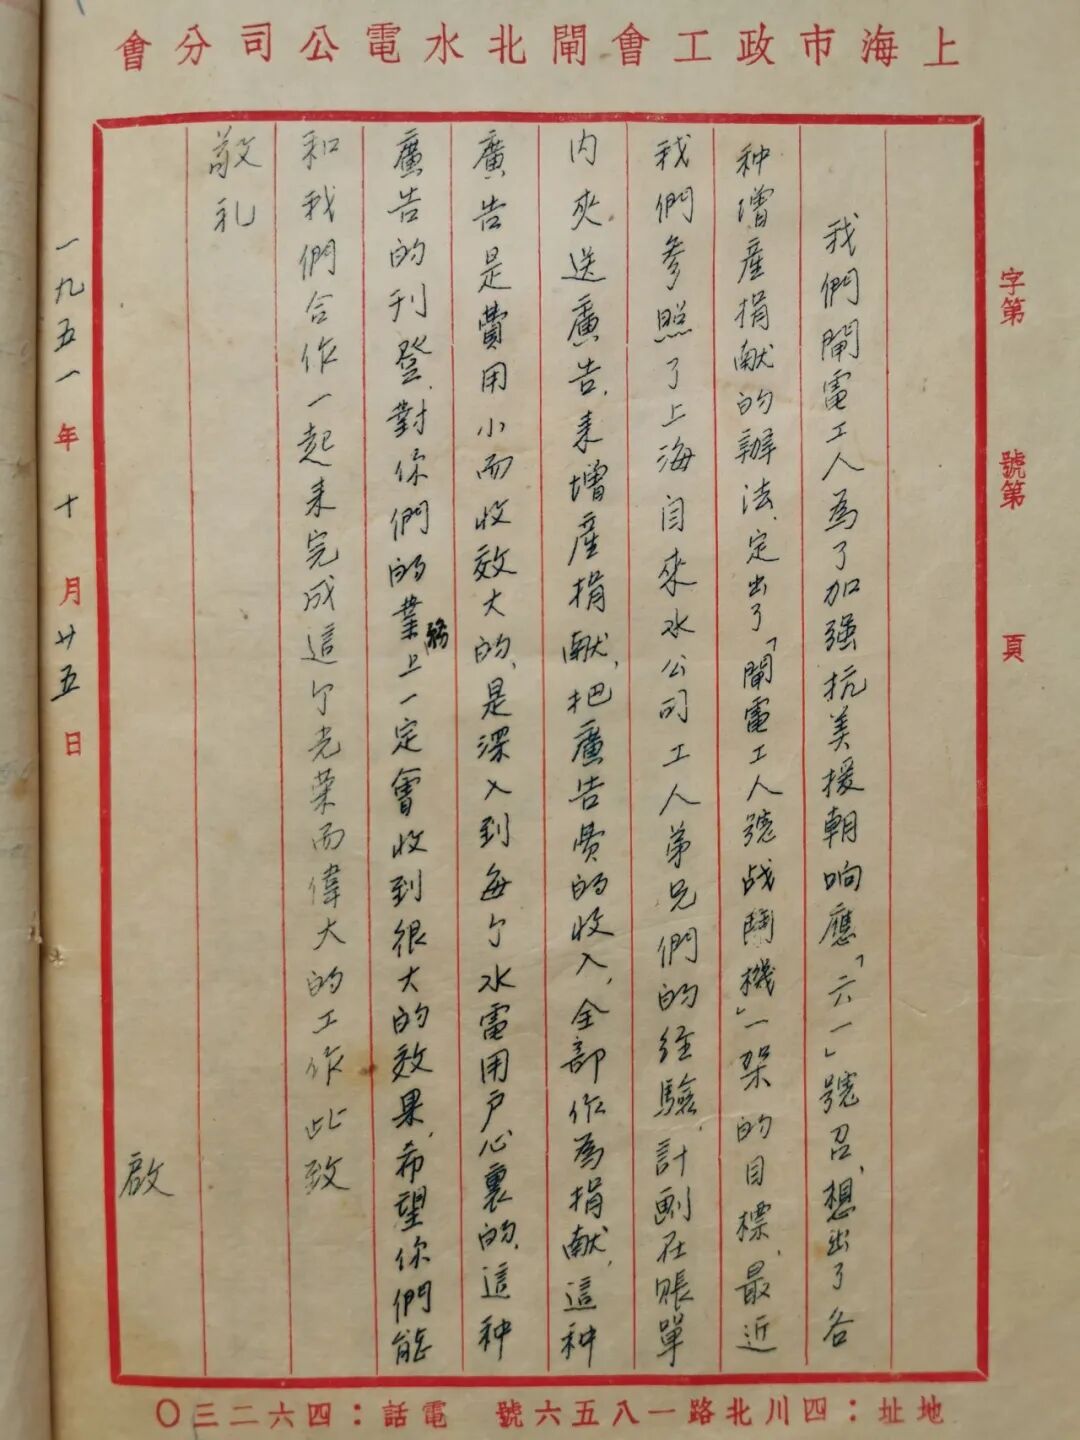 上海市政工會閘北水電公司分會
字第　號第　頁
我們閘電工人為了加强抗美援朝响應「六一」號召，想出了各
种增產捐献的辦法，定出了「閘電工人號战鬪機」一架的目標，最近
我們參照了上海自來水公司工人弟兄們的經驗，計劃在賬單
内夾送廣告，来增產捐献，把廣告费的收入，全部作為捐献，這种
廣告是費用小而收效大的，是深入到每个水電用户心裏的，這种
廣告的刊登，對你們的業務上一定會收到很大的效果，希望你們能
和我們合作一起来完成這个光荣而偉大的工作 此致
敬礼
啟
一九五一年十月廿五日
地址：四川北路一八五六號　電話：四六二三〇